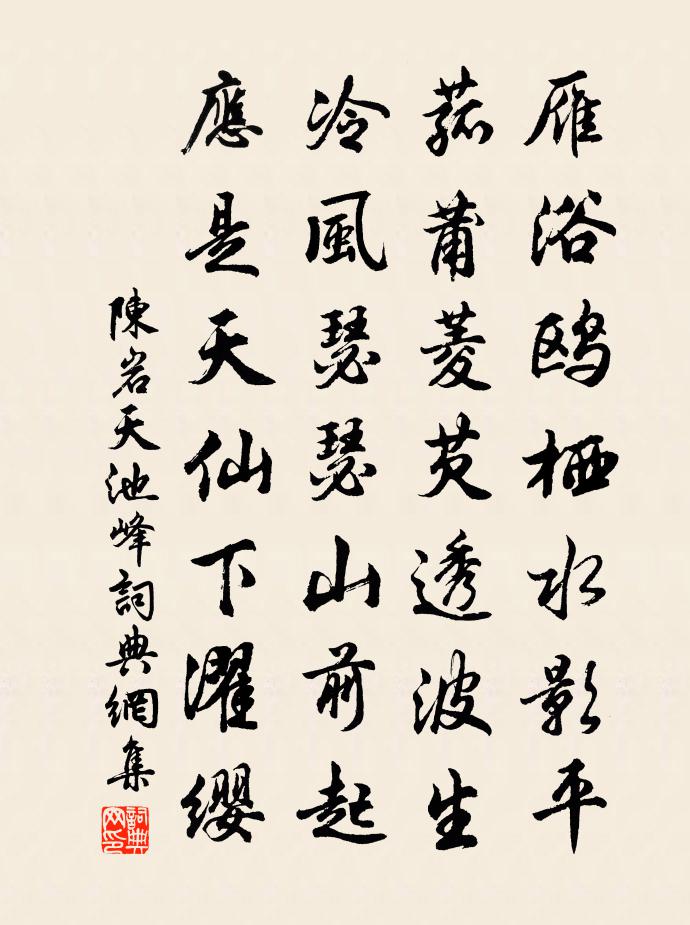 雁浴鸥栖水影平
菰莆菱芡透波生
冷風瑟瑟山前起
應是天仙下濯缨
陳岩天池峰詞典網集
詞典网印